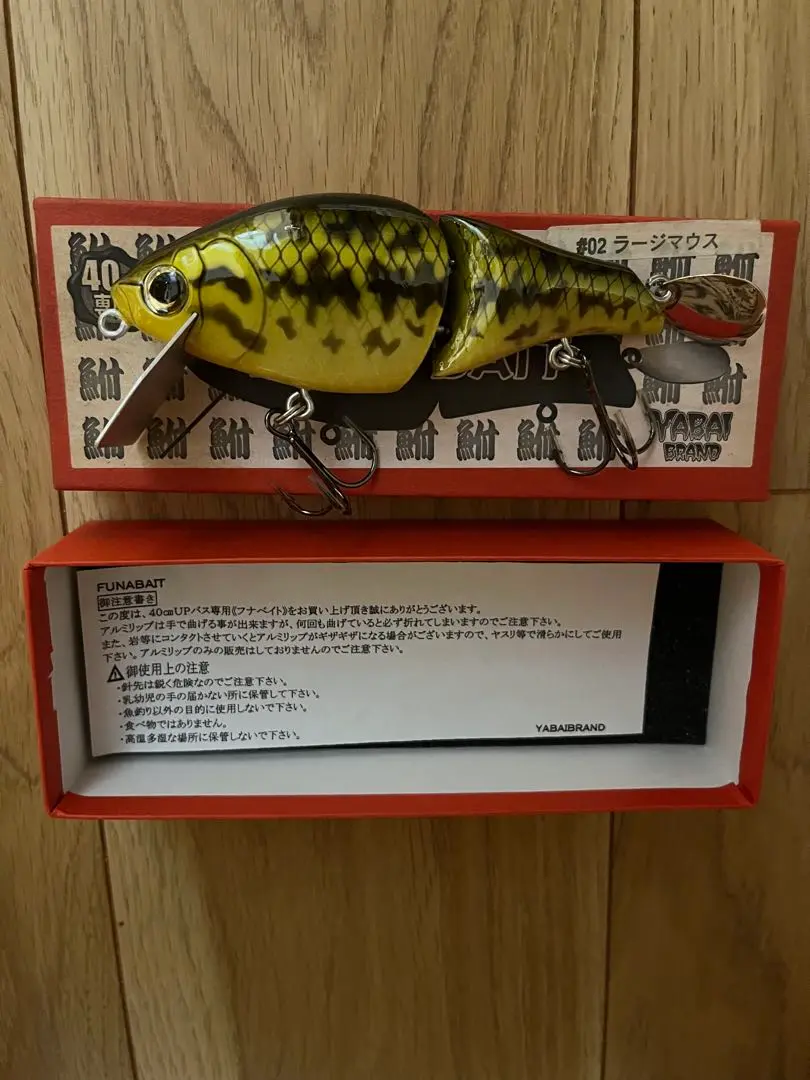 40
#02 ラージマウス
鮒 鮒 鮒 鮒
鮒
鮒 鮒
鮒 鮒 鮒 鮒 鮒 鮒 鮒 鮒
BAIT
YABAI
BRAND
FUNABAIT
御注意書き
この度は、40cmUPバス専用《フナベイト》をお買い上げ頂き誠にありがとうございます。
アルミリップは手で曲げる事が出来ますが、何回も曲げていると必ず折れてしまいますのでご注意下さい。
また、岩等にコンタクトさせていくとアルミリップがギザギザになる場合がございますので、ヤスリ等で滑らかにしてご使用
下さい。アルミリップのみの販売はしておりませんのでご注意下さい。
⚠御使用上の注意
・針先は鋭く危険なのでご注意下さい。
・乳幼児の手の届かない所に保管して下さい。
・魚釣り以外の目的に使用しないで下さい。
・食べ物ではありません。
・高温多湿な場所に保管しないで下さい。
YABAIBRAND